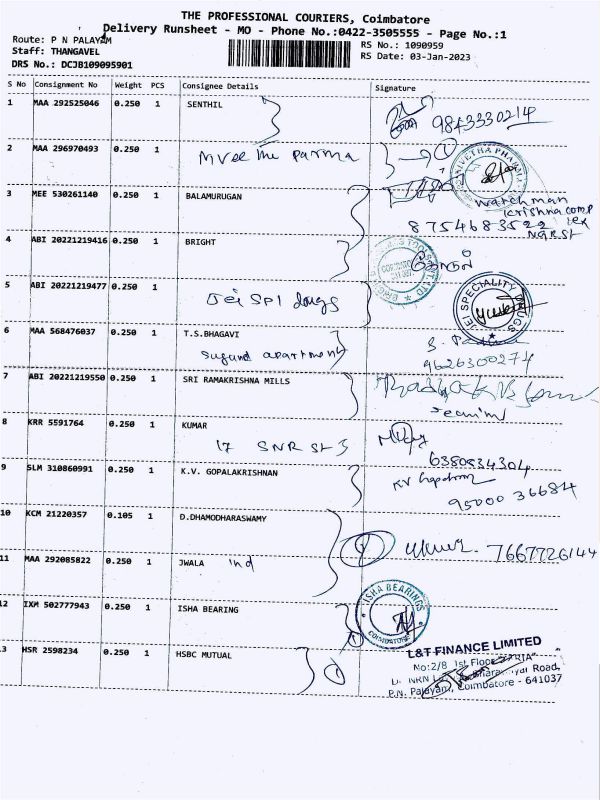 THE PROFESSIONAL COURIERS, Coimbatore
Delivery Runsheet - MO - Phone No.:0422-3505555 - Page No.:1
Route: P N PALAYAM
Staff: THANGAVEL
DRS No.: DCJB109095901
RS No.: 1090959
RS Date: 03-Jan-2023
S No Consignment No Weight PCS Consignee Details Signature
1 MAA 292525046 0.250 1 SENTHIL
9843330214
2 MAA 296970493 0.250 1
NIVETHA PHARMA
3 MEE 530261140 0.250 1 BALAMURUGAN
watchman
krishna comp
8754683522
4 ABI 20221219416 0.250 1 BRIGHT
5 ABI 20221219477 0.250 1
Jei SPl drugs
JEI SPECIALITY DRUGS
6 MAA 568476037 0.250 1 T.S.BHAGAVI
sugand apartment
9626300274
7 ABI 20221219550 0.250 1 SRI RAMAKRISHNA MILLS
8 KRR 5591764 0.250 1 KUMAR
17 SNR St
6380834304
9 SLM 310860991 0.250 1 K.V. GOPALAKRISHNAN
95000 36684
10 KCM 21220357 0.105 1 D.DHAMODHARASWAMY
1
7667726144
11 MAA 292085822 0.250 1 JWALA ind
12 IXM 502777943 0.250 1 ISHA BEARING
ISHA BEARINGS
COIMBATORE
13 HSR 2598234 0.250 1 HSBC MUTUAL
L&T FINANCE LIMITED
No:2/8 1st Floor
Road,
P.N. Palayam, Coimbatore - 641037